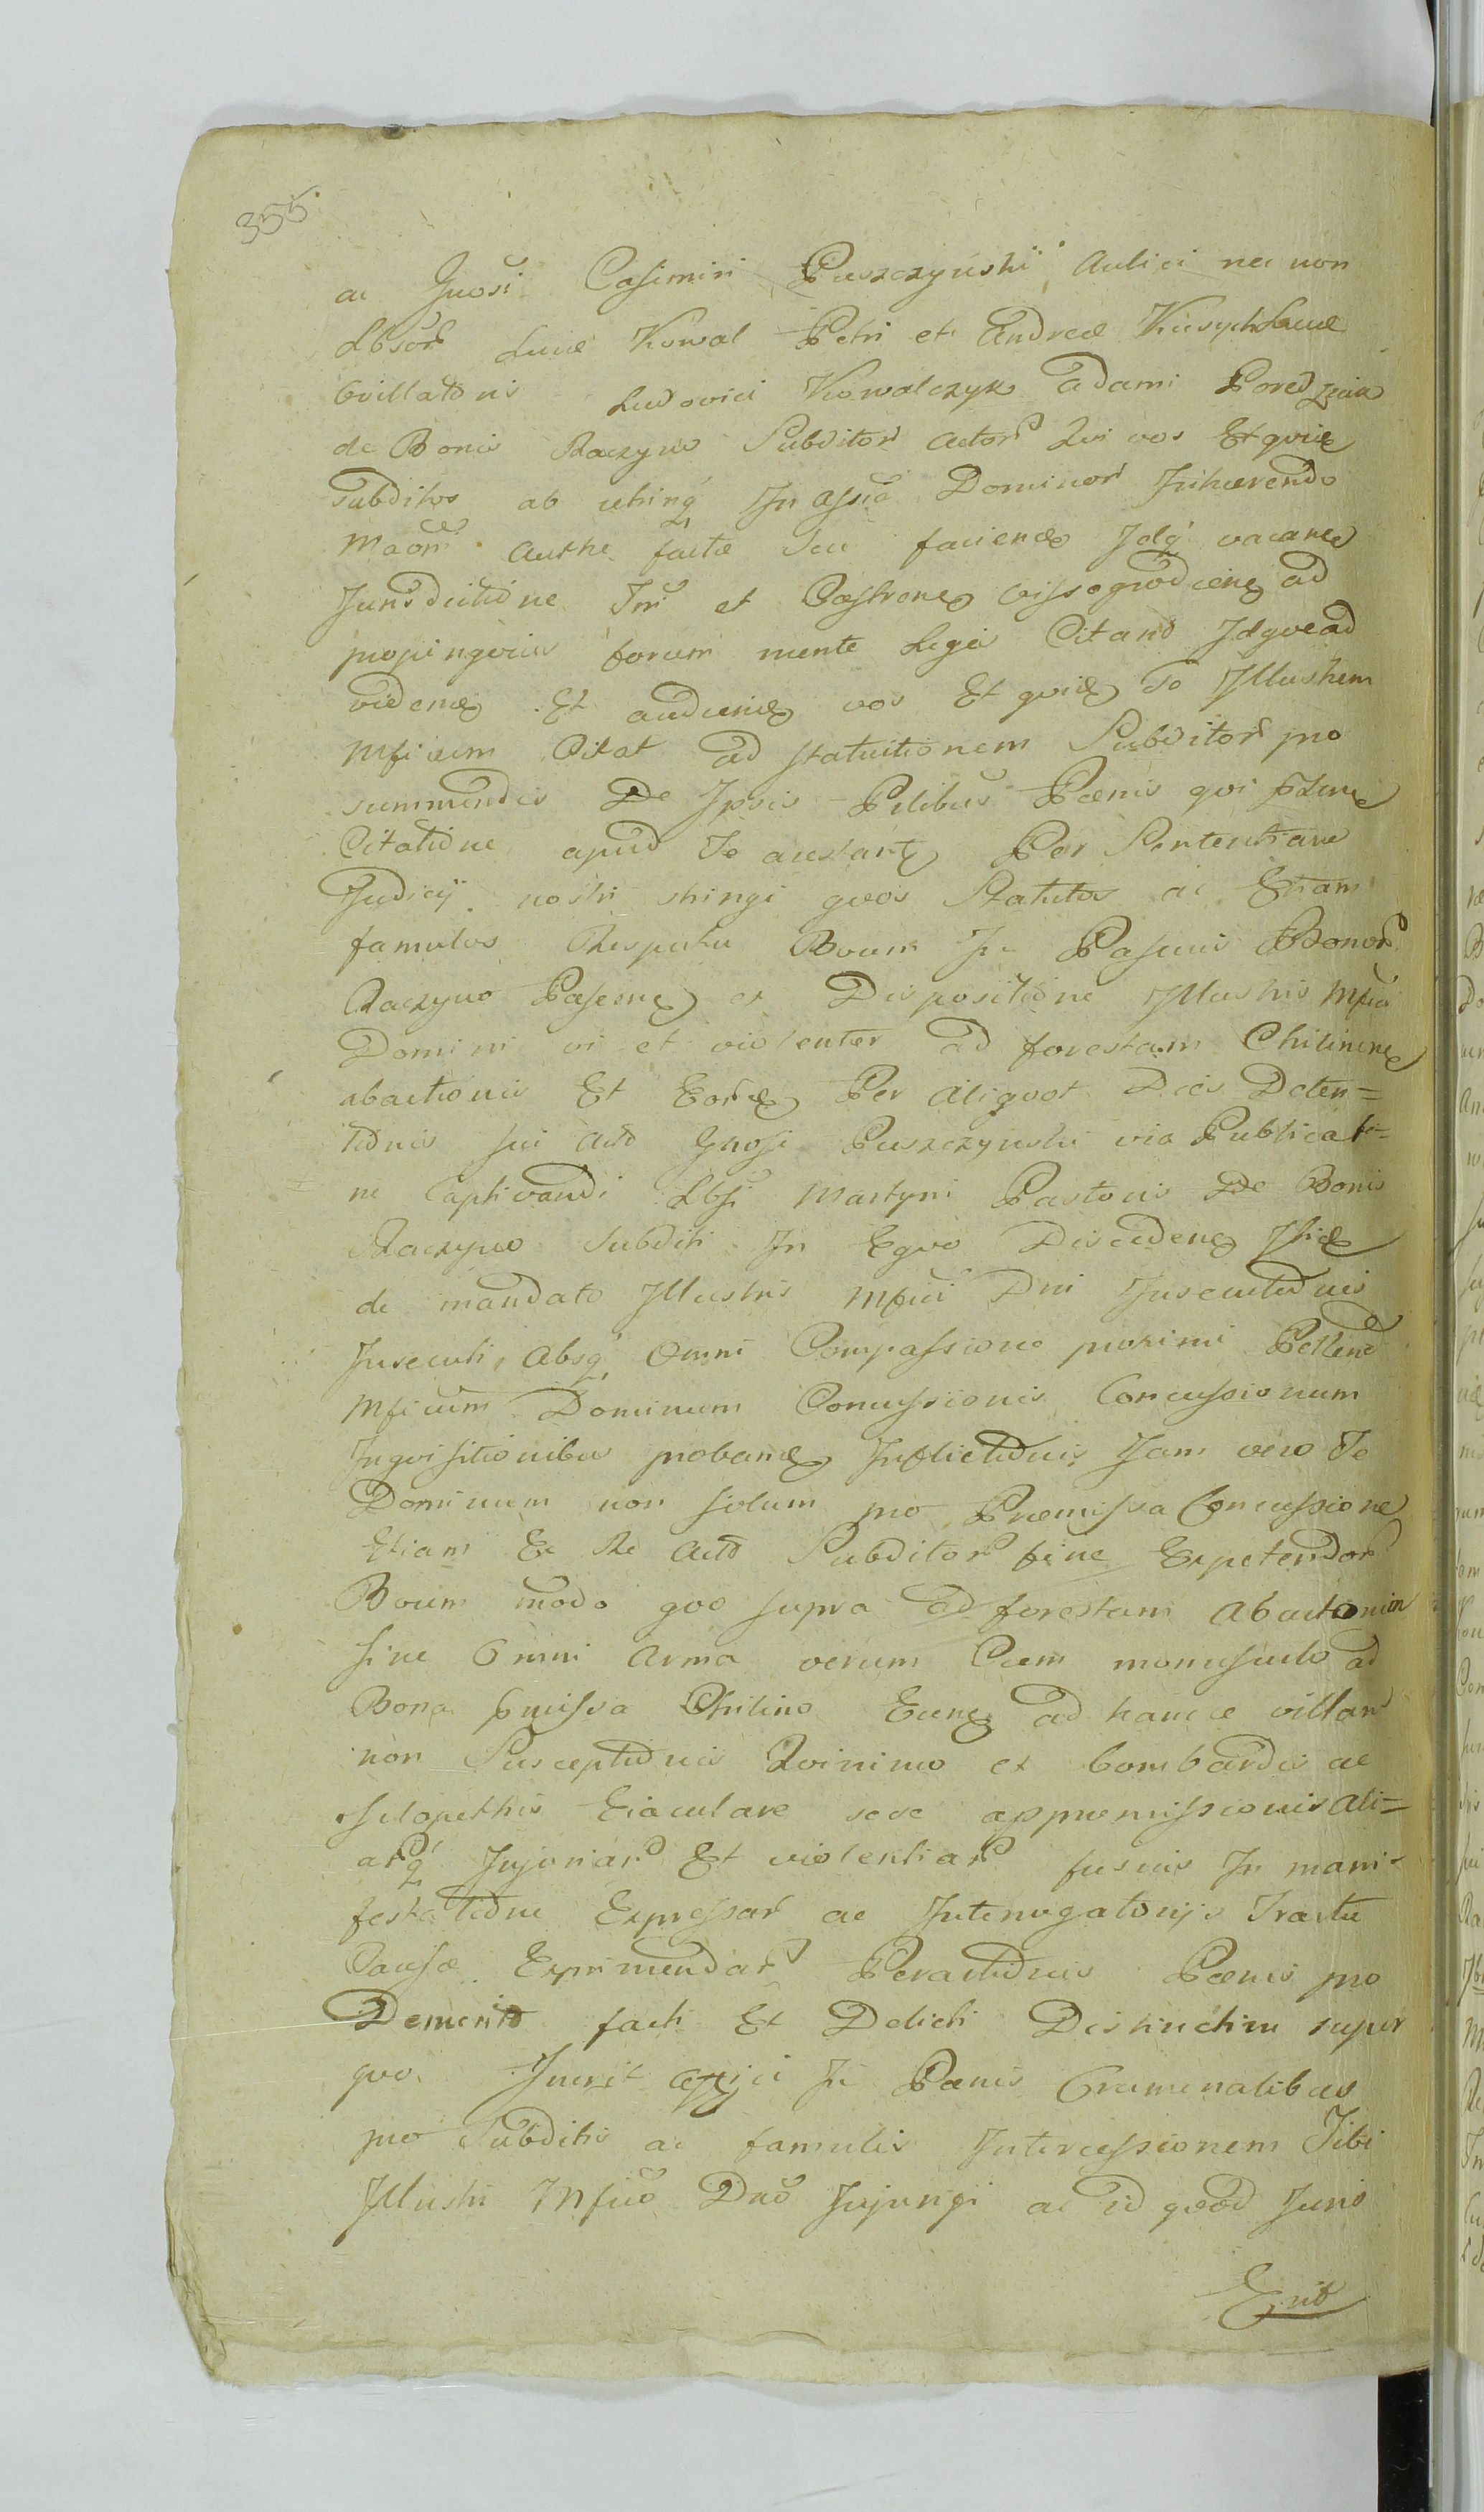 355.
ac Gnosi Casimiri Puszczyński Aulici nec non
Lbsor Lucæ Kowal Petri et Andreæ
Ludovici Kowalczyk Adami
de Bonis Raczyno Subditor Actor Qui vos Et qvie
subditos ab utrinq Dominor Inhærendo
factæ seu faciendæ Idq vacante
Jurisdictione Tri et Castrens Vissogrodiens ad
propinqvius forum mente Legis Citand Idqve ad
videnq Et audienq vos Et qviq Te Illustrem
Mficum Citat ad statuitionem Subditor pro
summendis De Ipsis Pœnis qvi
Citatione apud Te arestantr Per Sententiam
Judicij nostri stringi qvos Statutos ac Etiam
famulos Respectu Boum In Pascuis Bonor
Raczyno Pascenq ex Dispositione Illustris Mfici
Domini vi et violenter ad forestam Chilinenq
abactionis Et Eorq Per aliqvot Dies Deten=
tionis sui Gnosi Puszczynski via Publica
ne Captivandi Lbsi Martyni Pastoris De Bonis
Raczyno Subditi In Eqvo Discedenq
de mandato Illustris Mfici Dni Insecutionis
Insecuti, Absq Omni Compassione proximi
Mficum Dominum Concussionum
Inqvisitionibus probanq Inflictionis Jam vero Te
Dominum non solum pro Præmissa Concussione
Etiam Ex Re Subditor fine Expetendor
Boum modo qvo supra ad forestam Abactionis
sine Omni Arma verum Cum ad
Bona pmissa Chilino Eunq ad hance villam
non Susceptionis Qvinimo ex bombardis ac
sclopethis Eiaculare sese appromissionis Ali=
arq Injuriar Et violentiar fusius In mani=
festatione Expressar ac Interrogatorijs Tractu
Causæ Exprimendar Peractionis Pœnis pro
Demerito facti Et Delicti Distinctim super
qvo In Pœnis Criminalibus
pro Subditis ac famulis Intercessionem Tibi
Illustri Mfico Dno Injungi ac id qvod Juris
Erit